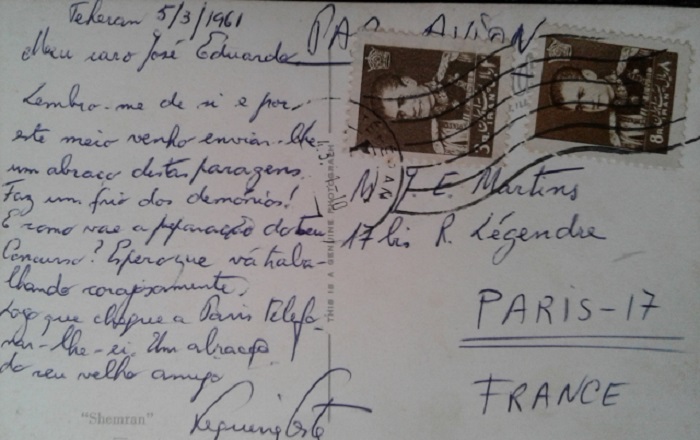 Teheran 5/3/1961
Meu caro José Eduardo
Lembro-me de si e por
este meio venho enviar-lhe
um abraço destas paragens.
Faz um frio dos demónios!
E como vae a preparação do teu
Concurso? Espero que vá traba-
lhando corajosamente.
Logo que chegue a Paris telefo-
nar-lhe-ei. Um abraço
do seu velho amigo
"Shemran"
THIS IS A GENUINE PHOTOGRAPH
PAR AVION
TEHERAN
M. J. E. Martins
17 bis R. Légendre
PARIS-17
FRANCE